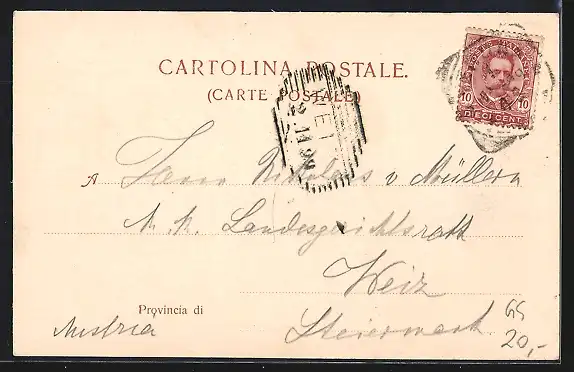 CARTOLINA POSTALE.
(CARTE POSTALE)
POSTE ITALIANE
10 10
DIECI CENT.
A Herrn Nikolaus v Müllern
K. K. Landesgerichtsrath
Weiz
Provincia di
Austria Steiermark
GS
20,-